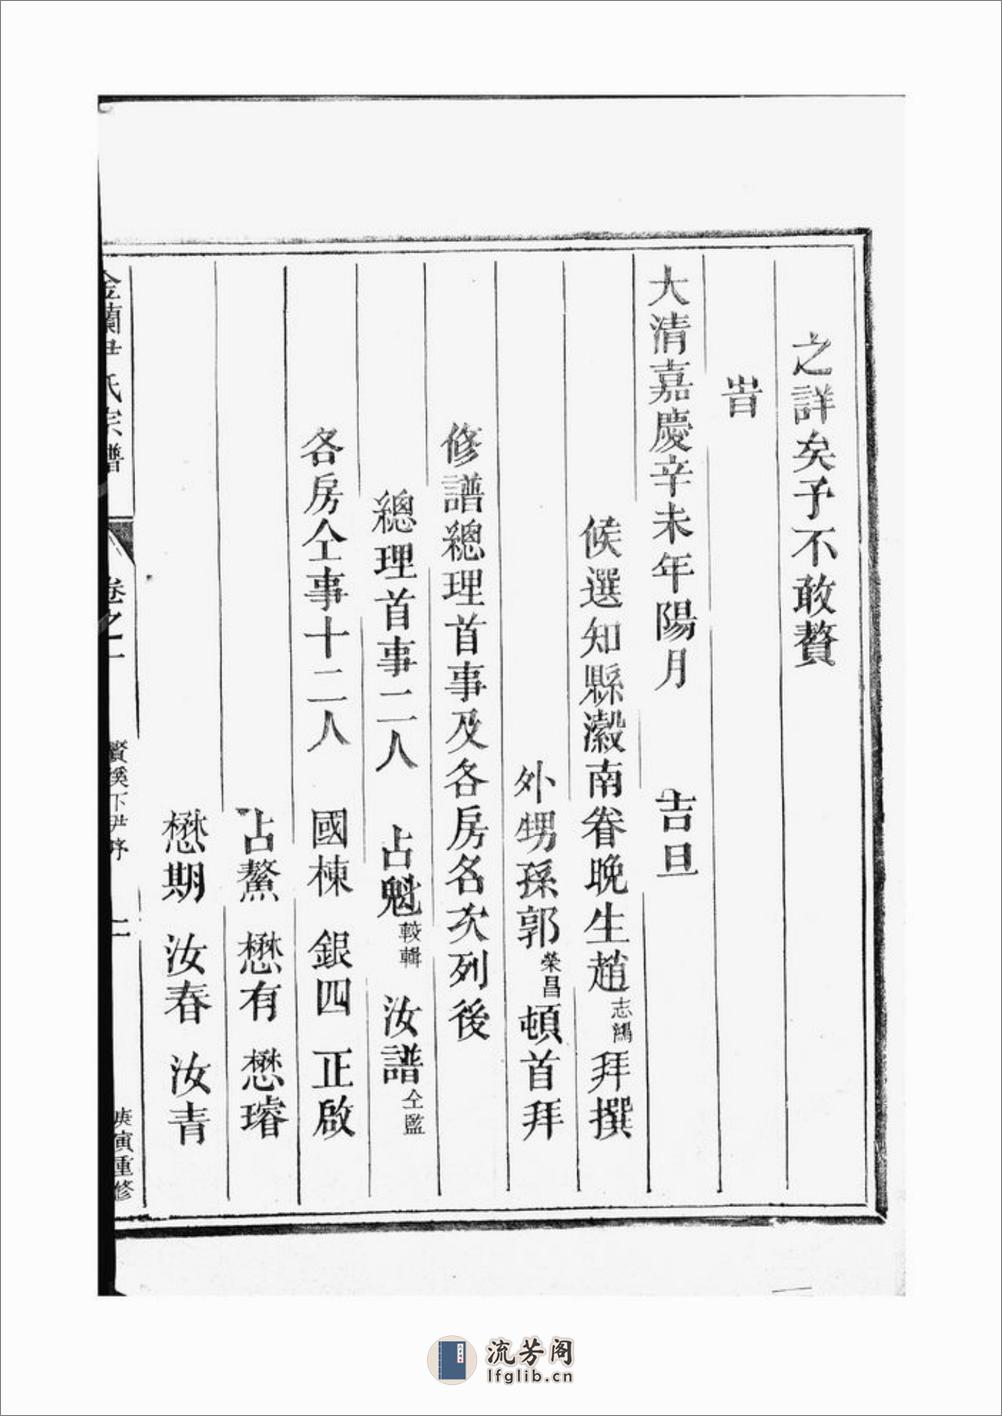 之詳矣予不敢贅
旹
大清嘉慶辛未年陽月 吉旦
候選知縣瀫南眷晚生趙志鴻拜撰
外甥孫郭榮昌頓首拜
修譜總理首事及各房名次列後
總理首事二人 占魁較輯 汝譜仝監
各房仝事十二人 國棟 銀四 正啟
占鰲 懋有 懋璿
懋期 汝春 汝青
金蘭尹氏宗譜 卷之一 賢溪下尹序 二 庚寅重修
流芳阁
lfglib.cn